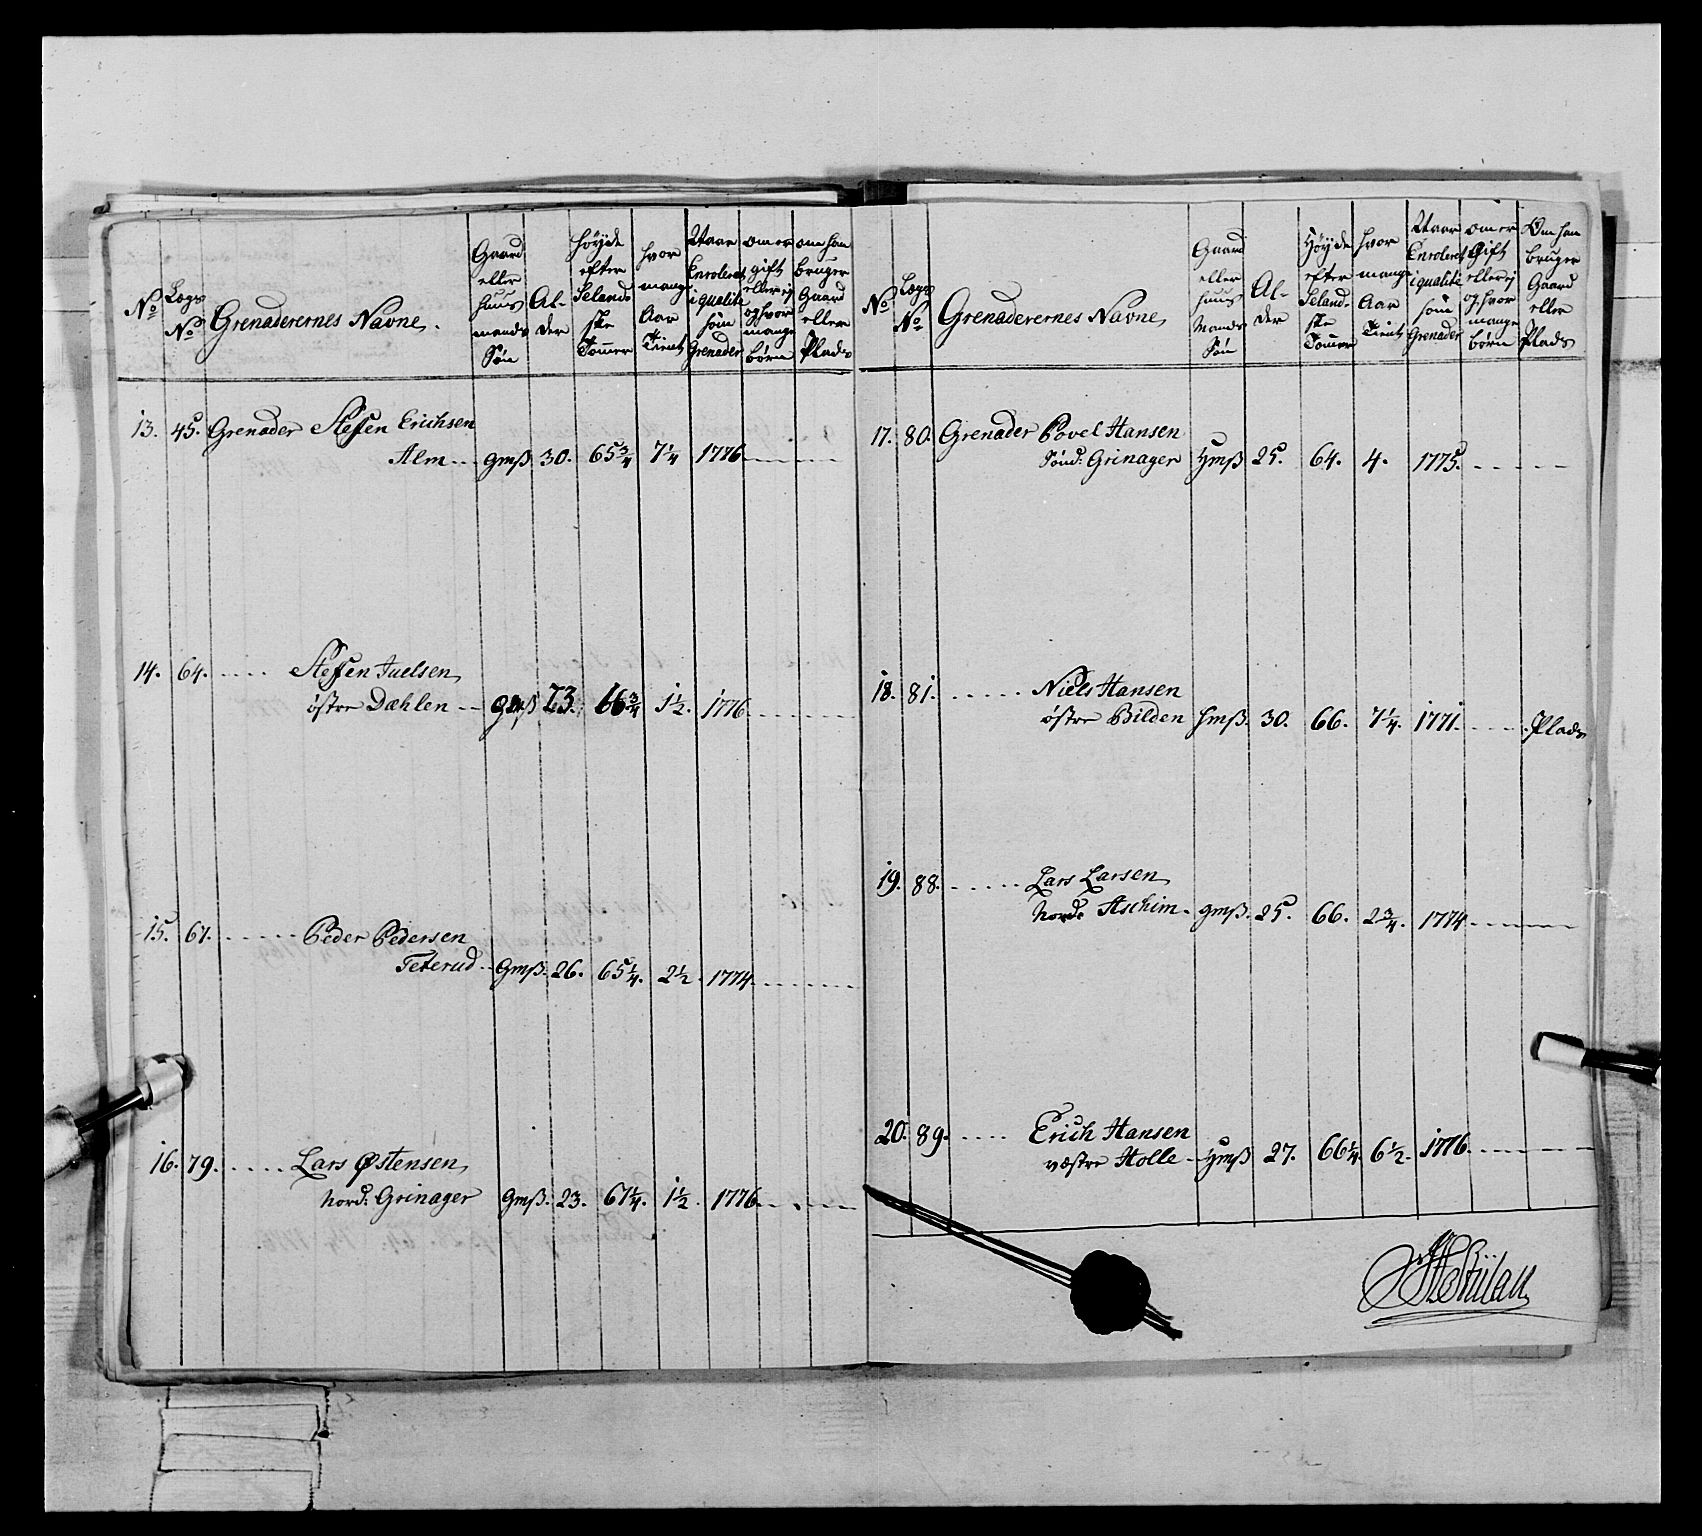 No
Lægs No
Grenaderernes Navne.
Gaard eller Huus mands Søn
Al-
der
Høyde efter Selands ske Tommer
hvor mange Aar Tient
Naar Enroleret i qualité som Grenader
om er gift eller ej og hvor mange børn
om han bruger Gaard eller Plads
13. 45. Grenader Steffen Erichsen
Alm gmß 30. 65 3/4 7 1/4 1776
14. 64. Steffen Juelsen
østre Dæhlen 23. 66 3/4 1 1/2. 1776
15. 67. Peder Pedersen
Teterud gmß. 26. 65 1/4. 2 1/2. 1774
16. 79. Lars Østensen
Nord: Grinager gmß. 23. 67 1/4. 1 1/2. 1776
No
Lægs No
Grenaderernes Navne
Gaard eller Huus Mands Søn
Al-
der
Høyde efter Selands ske Tommer
hvor mange Aar Tient
Naar Enroleret i qualité som Grenader
om er Gift eller ej og hvor mange børn
Om han bruger Gaard eller Plads
17. 80. Grenader Povel Hansen
Sønd: Grinager Hmß 25. 64. 4. 1775.
18. 81. Niels Hansen
østre Bilden hmß. 30. 66. 7 1/4. 1771. Plads
19. 88. Lars Larsen
Nordr Aschim gmß. 25. 66. 2 3/4. 1774
20. 89. Erich Hansen
væstre Holle Hmß 27. 66 1/4 6 1/2. 1776